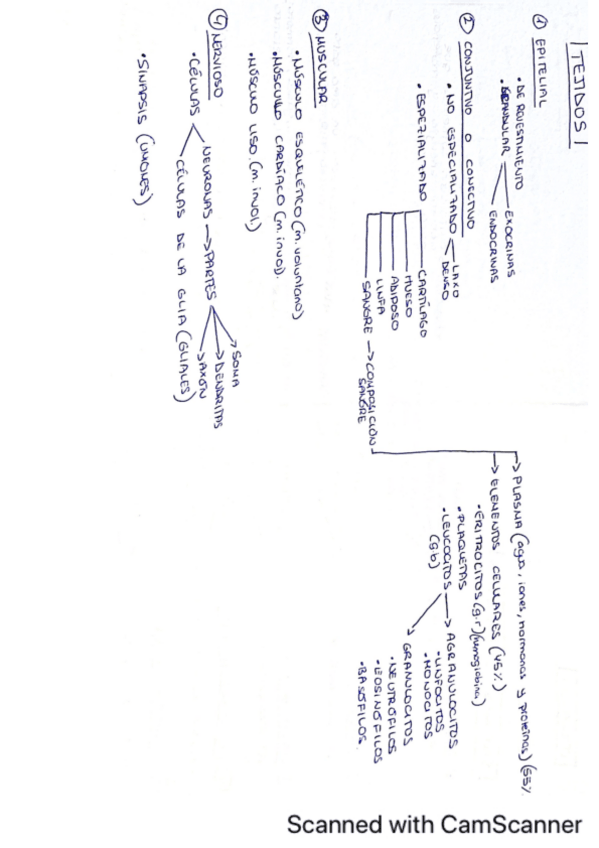 TEJIDOS
① EPITELIAL
• DE REVESTIMIENTO
• GLANDULAR
EXOCRINAS
ENDOCRINAS
② CONJUNTIVO O CONECTIVO
• NO ESPECIALIZADO
LAXO
DENSO
• ESPEZIALIZADO
CARTÍLAGO
HUESO
ADIPOSO
LINFA
SANGRE → COMPOSICIÓN SANGRE
→ PLASMA (agua, iones, hormonas y proteínas) (55%
→ ELEMENTOS CELULARES (45%)
• ERITROCITOS (g.r) (hemoglobina)
• PLAQUETAS
• LEUCOCITOS (g.b)
→ AGRANULOCITOS
• LINFOCITOS
• MONOCITOS
→ GRANULOCITOS
• NEUTRÓFILOS
• EOSINÓFILOS
• BASÓFILOS.
③ MUSCULAR
• MÚSCULO ESQUELÉTICO (m. voluntario)
• MÚSCULO CARDÍACO (m. invol).
• MÚSCULO LISO. (m. invol)
④ NERVIOSO
• CÉLULAS
NEURONAS → PARTES
→ SOMA
→ DENDRITAS
→ AXÓN
CÉLULAS DE LA GLIA (GLIALES)
• SINAPSIS (UNIONES)
Scanned with CamScanner